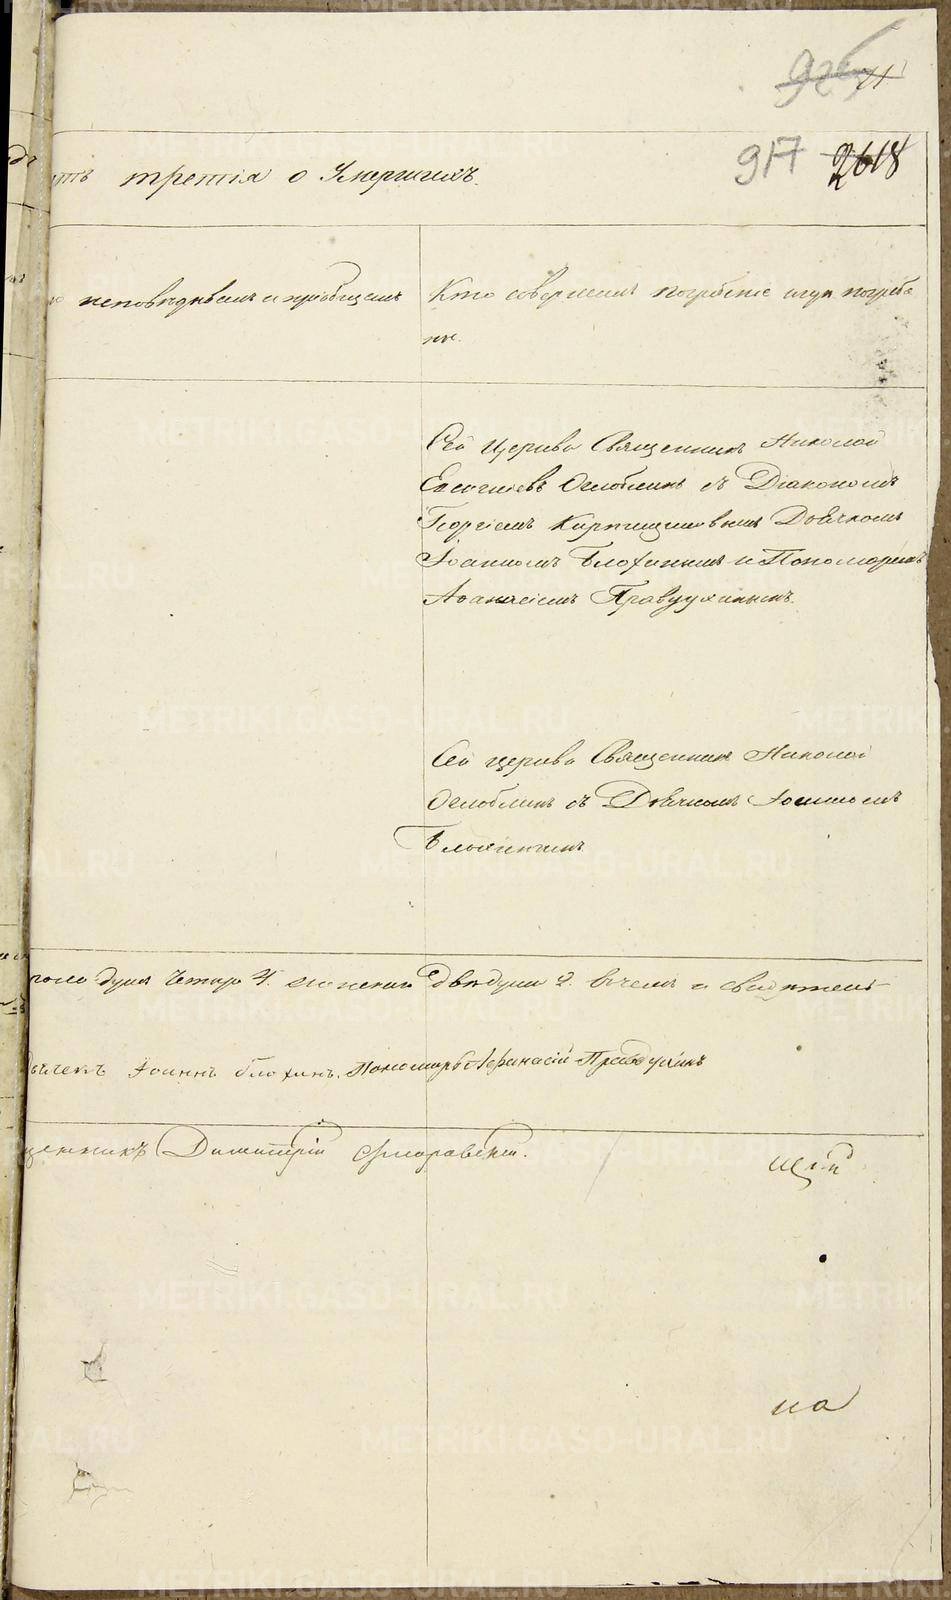 917 2618
третія о Умершихъ.
исповѣдывалъ и пріобщалъ
Кто совершалъ погребеніе и гдѣ погребе
ны.
Сей Церкви Священникъ Николай
Евсигнѣевъ Оглоблинъ съ Діакономъ
Георгіемъ Кирпищиковымъ Дьячкомъ
Іоанномъ Блохинымъ и Пономаремъ
Аѳанасіемъ Правдухинымъ.
Сей церкви Священникъ Николай
Оглоблинъ съ Дьячкомъ Іоанномъ
Блохинымъ
пола душъ четыре 4. женскаго двѣ души 2. въ чемъ и свидѣтель
Іоаннъ Блохинъ. Пономарь Афанасій Правдухинъ
Димитрій
на
METRIKI.GASO-URAL.RU